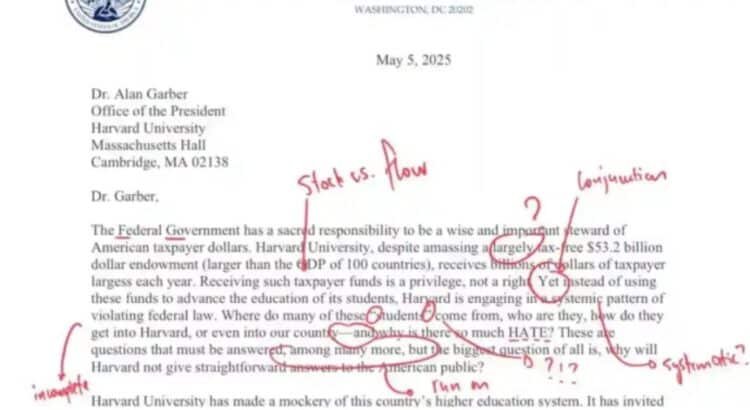 WASHINGTON, DC 20202
May 5, 2025
Dr. Alan Garber
Office of the President
Harvard University
Massachusetts Hall
Cambridge, MA 02138
Stock vs. flow
Conjunction
Dr. Garber,
?
The Federal Government has a sacred responsibility to be a wise and important steward of
American taxpayer dollars. Harvard University, despite amassing a largely tax-free $53.2 billion
dollar endowment (larger than the GDP of 100 countries), receives billions of dollars of taxpayer
largess each year. Receiving such taxpayer funds is a privilege, not a right. Yet instead of using
these funds to advance the education of its students, Harvard is engaging in a systemic pattern of
violating federal law. Where do many of these "students" come from, who are they, how do they
get into Harvard, or even into our country—and why is there so much HATE? These are
questions that must be answered, among many more, but the biggest question of all is, why will
Harvard not give straightforward answers to the American public?
systematic?
?!?
incomplete
run on
Harvard University has made a mockery of this country's higher education system. It has invited